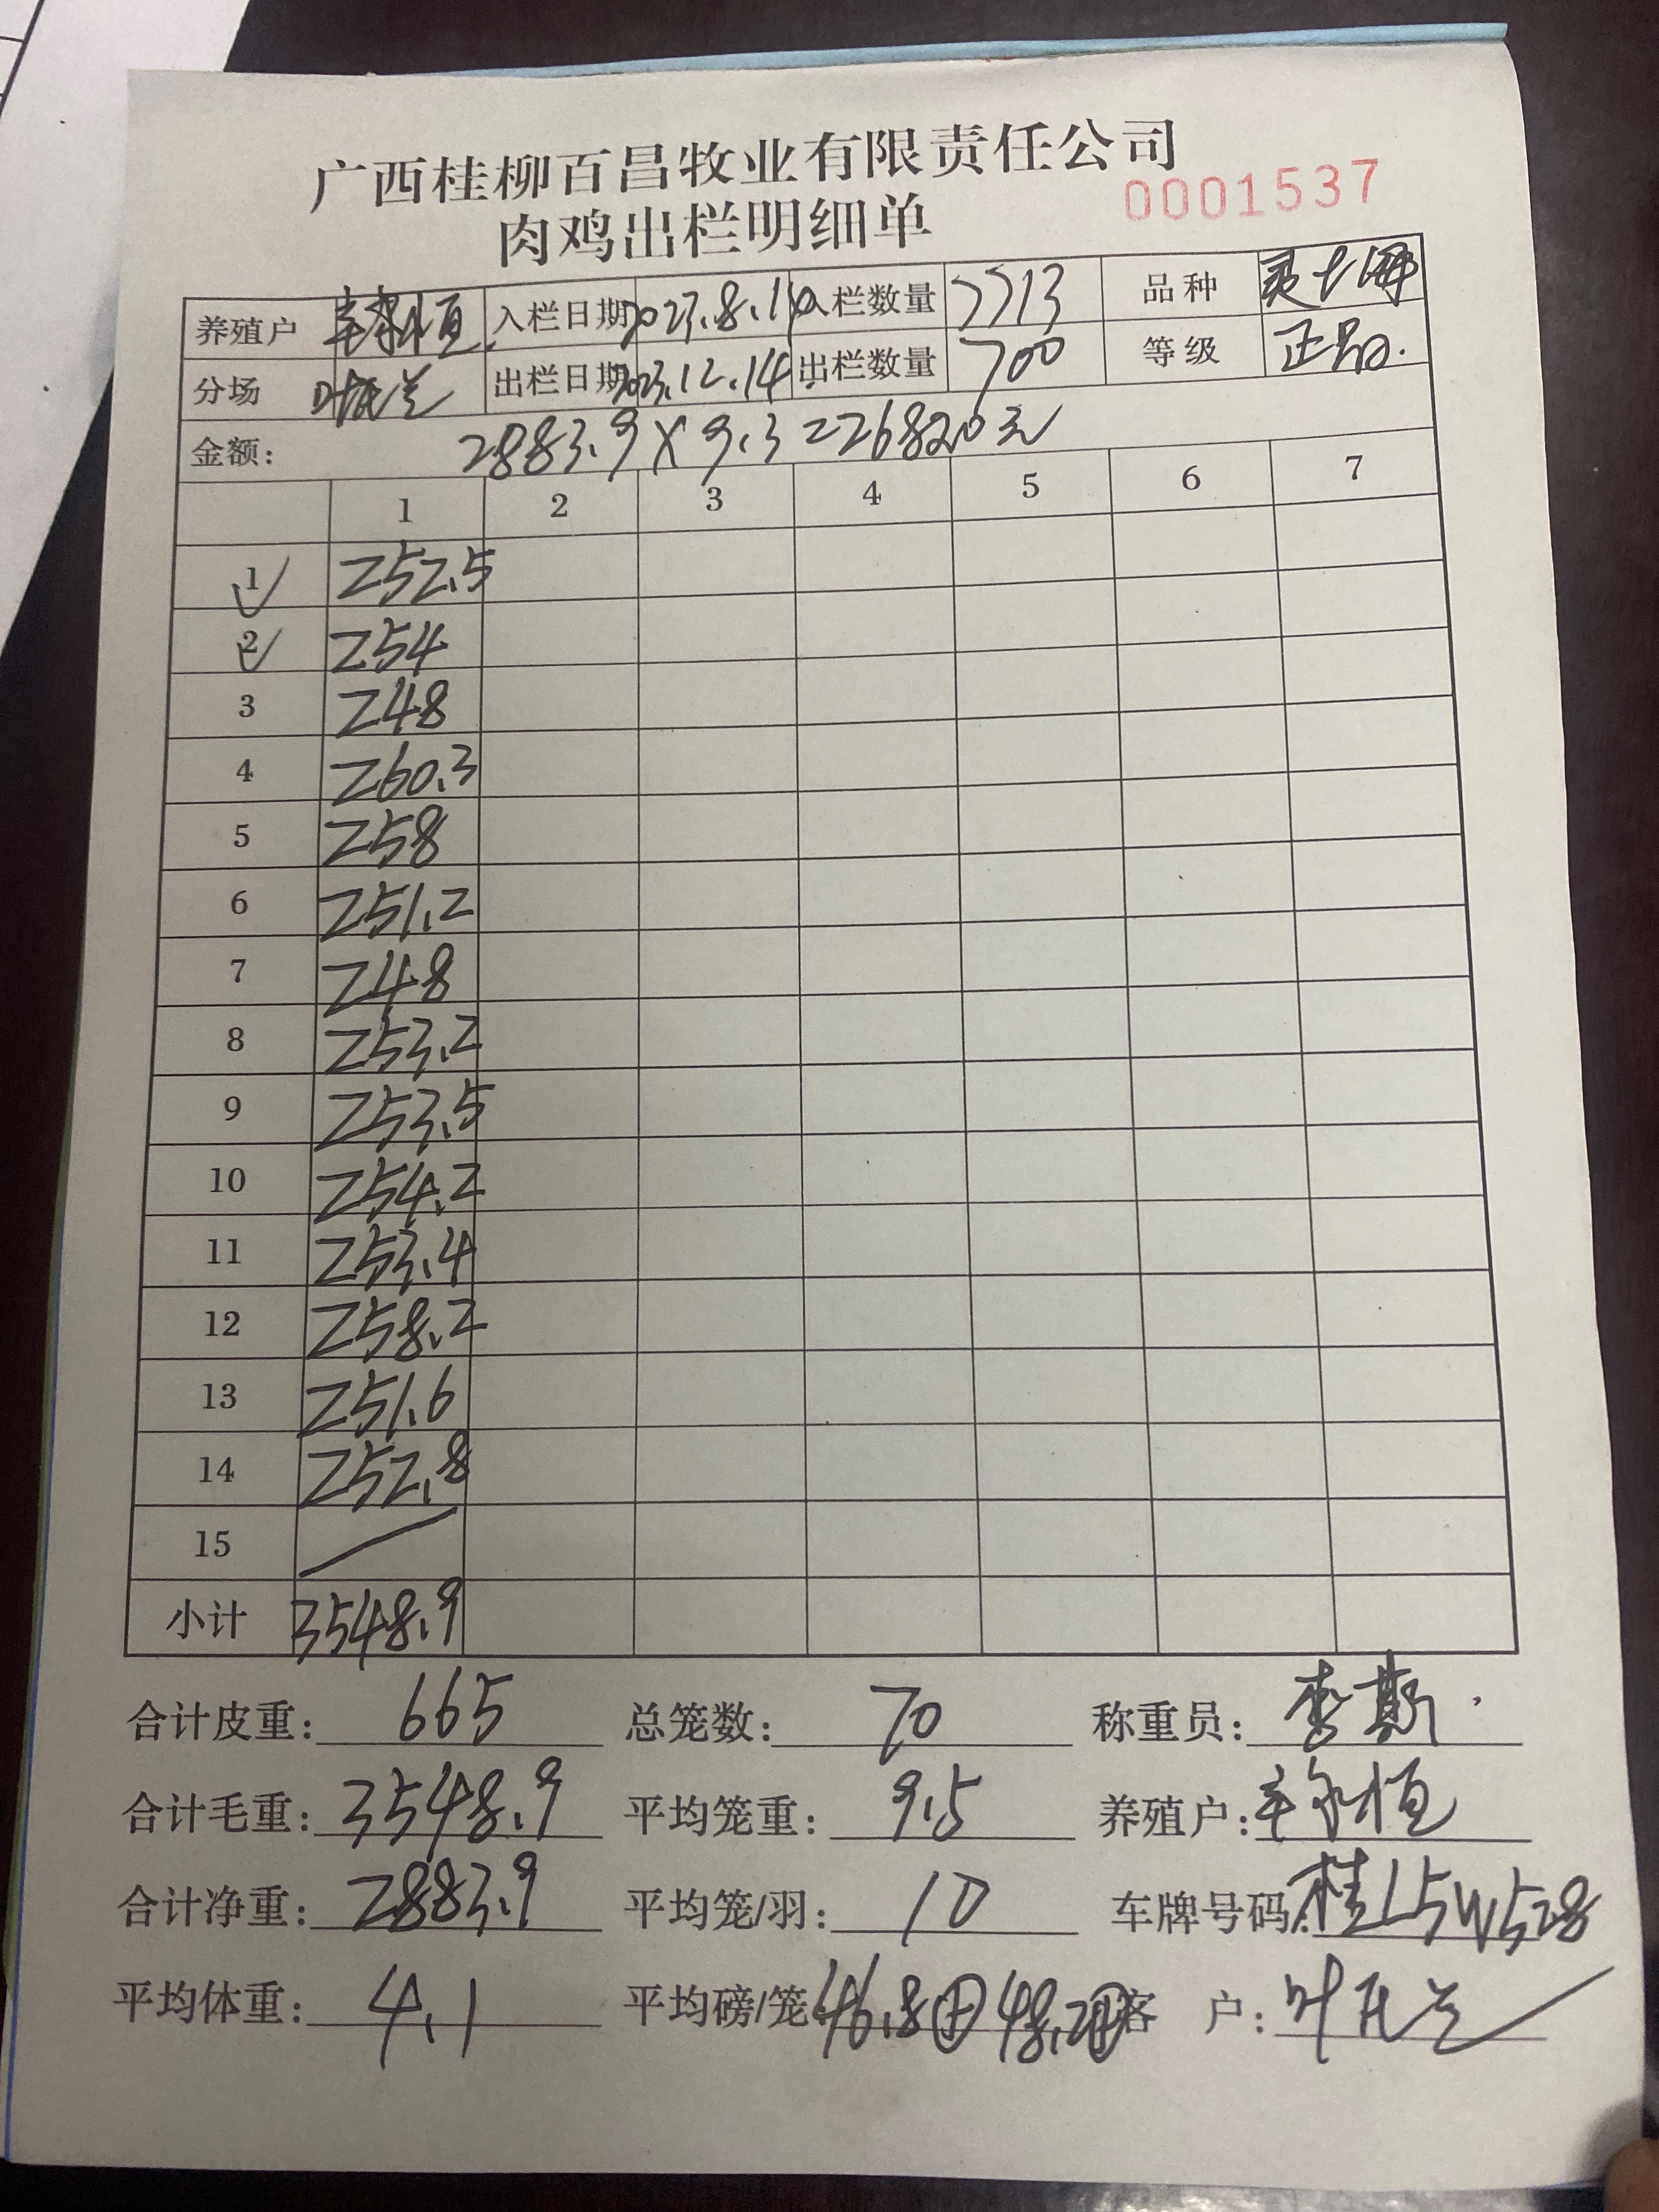 广西桂柳百昌牧业有限责任公司
肉鸡出栏明细单 0001537
养殖户 入栏日期 2023.8.1 入栏数量 7713 品种
分场 叶瓦兰 出栏日期 2023.12.14 出栏数量 700 等级 正品.
金额: 2883.9×9.3=26820元
1 2 3 4 5 6 7
1 252.5
2 254
3 248
4 260.3
5 258
6 251.2
7 248
8 253.2
9 253.5
10 254.2
11 253.4
12 258.2
13 251.6
14 252.8
15
小计 3548.9
合计皮重: 665 总笼数: 70 称重员: 李斯
合计毛重: 3548.9 平均笼重: 9.5 养殖户:
合计净重: 2883.9 平均笼/羽: 10 车牌号码: 桂L5W528
平均体重: 4.1 平均磅/笼: 46.8 48.2 客 户: 叶瓦兰